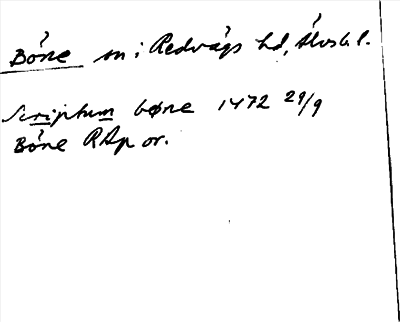 Böne sn i Redvägs hd, Älvsb. l.
Scriptum bøne 1472 29/9
Böne RAp or.